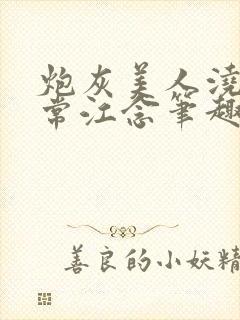 炮灰美人浇
常江念笔趣
善良的小妖精